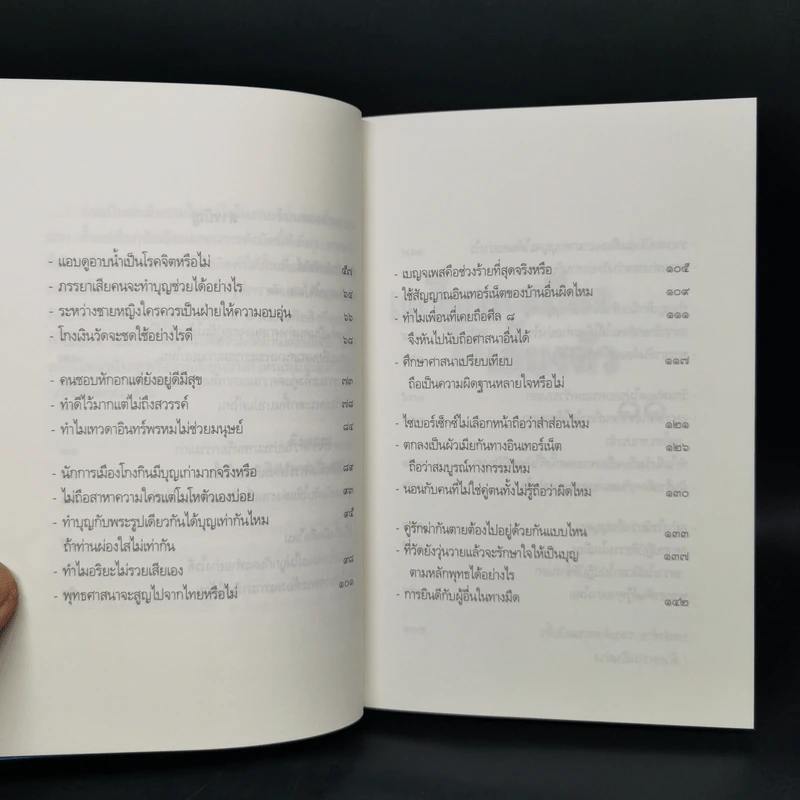 - แอบดูอาบน้ำเป็นโรคจิตหรือไม่ ๕๗
- ภรรยาเสียคนจะทำบุญช่วยได้อย่างไร ๖๔
- ระหว่างชายหญิงใครควรเป็นฝ่ายให้ความอบอุ่น ๖๖
- โกงเงินวัดจะชดใช้อย่างไรดี ๖๘
- คนชอบหักอกแต่ยังอยู่ดีมีสุข ๗๓
- ทำดีไว้มากแต่ไม่ถึงสวรรค์ ๗๘
- ทำไมเทวดาอินทร์พรหมไม่ช่วยมนุษย์ ๘๔
- นักการเมืองโกงกินมีบุญเก่ามากจริงหรือ ๘๙
- ไม่ถือสาหาความใครแต่โมโหตัวเองบ่อย ๙๓
- ทำบุญกับพระรูปเดียวกันได้บุญเท่ากันไหม ๙๕
ถ้าท่านผ่องใสไม่เท่ากัน
- ทำไมอริยะไม่รวยเสียเอง ๙๘
- พุทธศาสนาจะสูญไปจากไทยหรือไม่ ๑๐๑
- เบญจเพสคือช่วงร้ายที่สุดจริงหรือ ๑๐๕
- ใช้สัญญาณอินเทอร์เน็ตของบ้านอื่นผิดไหม ๑๐๙
- ทำไมเพื่อนที่เคยถือศีล ๘ ๑๑๑
จึงหันไปนับถือศาสนาอื่นได้
- ศึกษาศาสนาเปรียบเทียบ ๑๑๗
ถือเป็นความผิดฐานหลายใจหรือไม่
- ไซเบอร์เซ็กซ์ไม่เลือกหน้าถือว่าสำส่อนไหม ๑๒๑
- ตกลงเป็นผัวเมียกันทางอินเทอร์เน็ต ๑๒๖
ถือว่าสมบูรณ์ทางกรรมไหม
- นอนกับคนที่ไม่ใช่คู่ตนทั้งไม่รู้ถือว่าผิดไหม ๑๓๐
- คู่รักฆ่ากันตายต้องไปอยู่ด้วยกันแบบไหน ๑๓๓
- ที่วัดยังวุ่นวายแล้วจะรักษาใจให้เป็นบุญ ๑๓๗
ตามหลักพุทธได้อย่างไร
- การยินดีกับผู้อื่นในทางมืด ๑๔๒